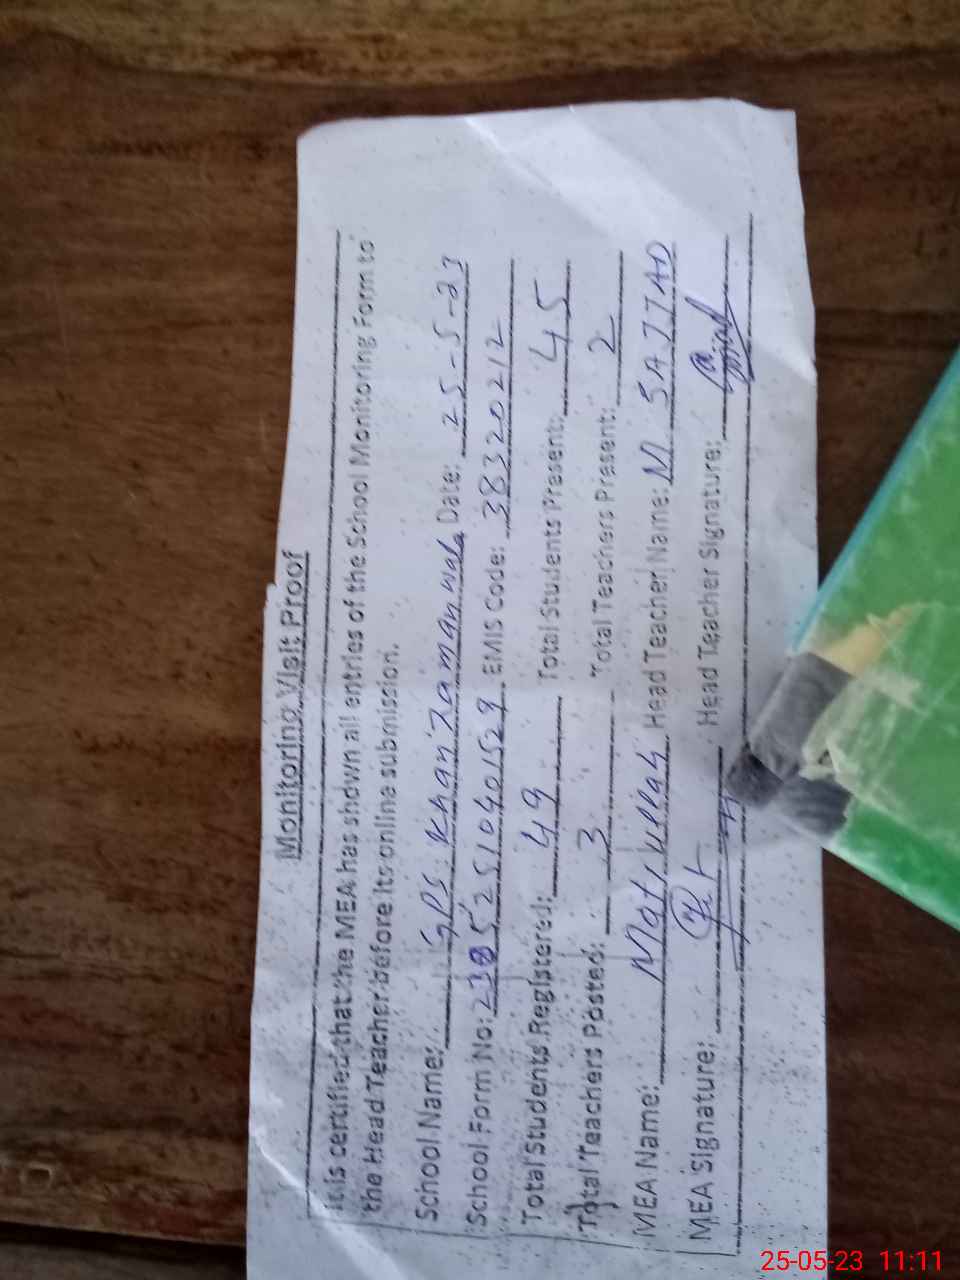 Monitoring Visit Proof
It is certified that the MEA has shown all entries of the School Monitoring Form to
the Head Teacher before its online submission.
School Name: GPS Khan Zaman wala Date: 25-5-23
School Form No: 23052510401529 EMIS Code: 38320212
Total Students Registered: 49 Total Students Present: 45
Total Teachers Posted: 3 Total Teachers Present: 2
MEA Name: Matiullah Head Teacher Name: M SAJJAD
MEA Signature: Head Teacher Signature:
25-05-23 11:11